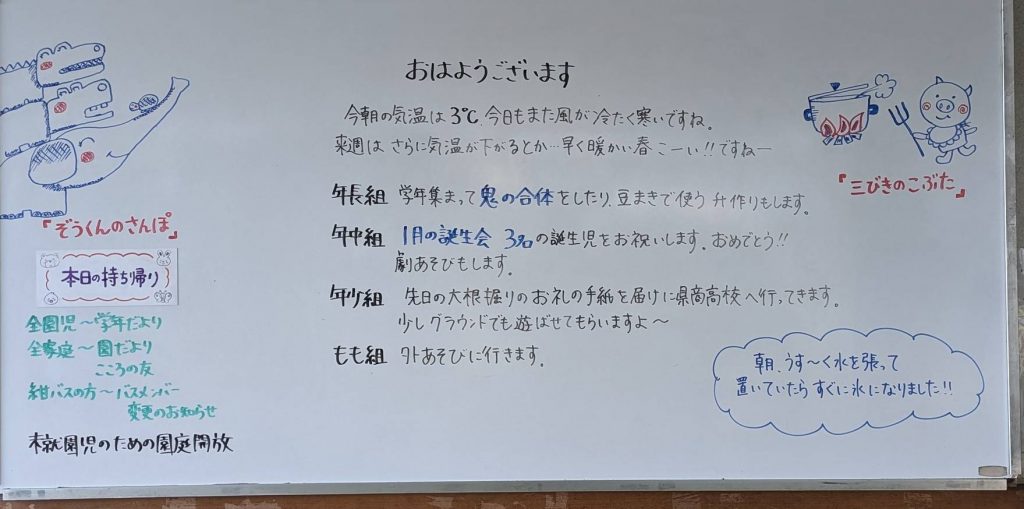 おはようございます
今朝の気温は3℃ 今日もまた風が冷たく寒いですね。
来週は さらに気温が下がるとか…早く暖かい春 こーい!!ですねー
年長組 学年集まって鬼の合体をしたり、豆まきで使う 升作りもします。
年中組 1月の誕生会 3名の誕生児をお祝いします。おめでとう!!
劇あそびもします。
年少組 先日の大根掘りのお礼の手紙を届けに県商高校へ行ってきます。
少しグラウンドでも遊ばせてもらいますよ〜
もも組 外あそびに行きます。
『ぞうくんのさんぽ』
本日の持ち帰り
全園児〜学年だより
全家庭〜園だより
こころの友
紺バスの方〜バスメンバー
変更のお知らせ
未就園児のための園庭開放
『三びきのこぶた』
朝、うす〜く水を張って
置いていたら すぐに氷になりました!!